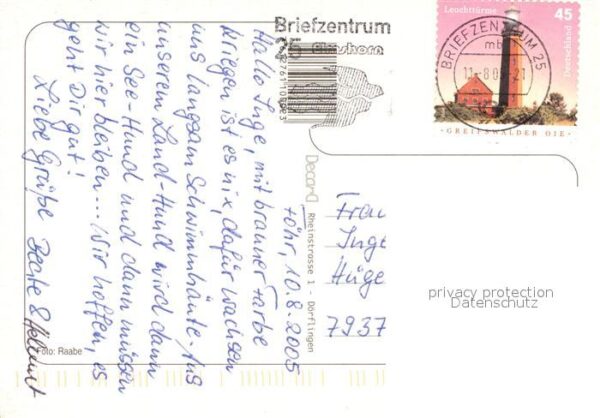 Föhr, 10.8.2005
Hallo Inge, mit brauner Farbe
kriegen ist es nix, dafür wachsen
uns langsam Schwimmhäute. Aus
unserem Land-Hund wird dann
ein See-Hund und dann müssen
wir hier bleiben... Wir hoffen, es
geht Dir gut!
Liebe Grüße Beate & Helmut
Foto: Raabe
Decora Rheinstrasse 1 - Dörflingen
Briefzentrum
25
Elmshorn
BRIEFZENTRUM 25
mb
Leuchttürme
45
Deutschland
GREIFSWALDER OIE
Frau
Inge
Hüge
7937
privacy protection
Datenschutz